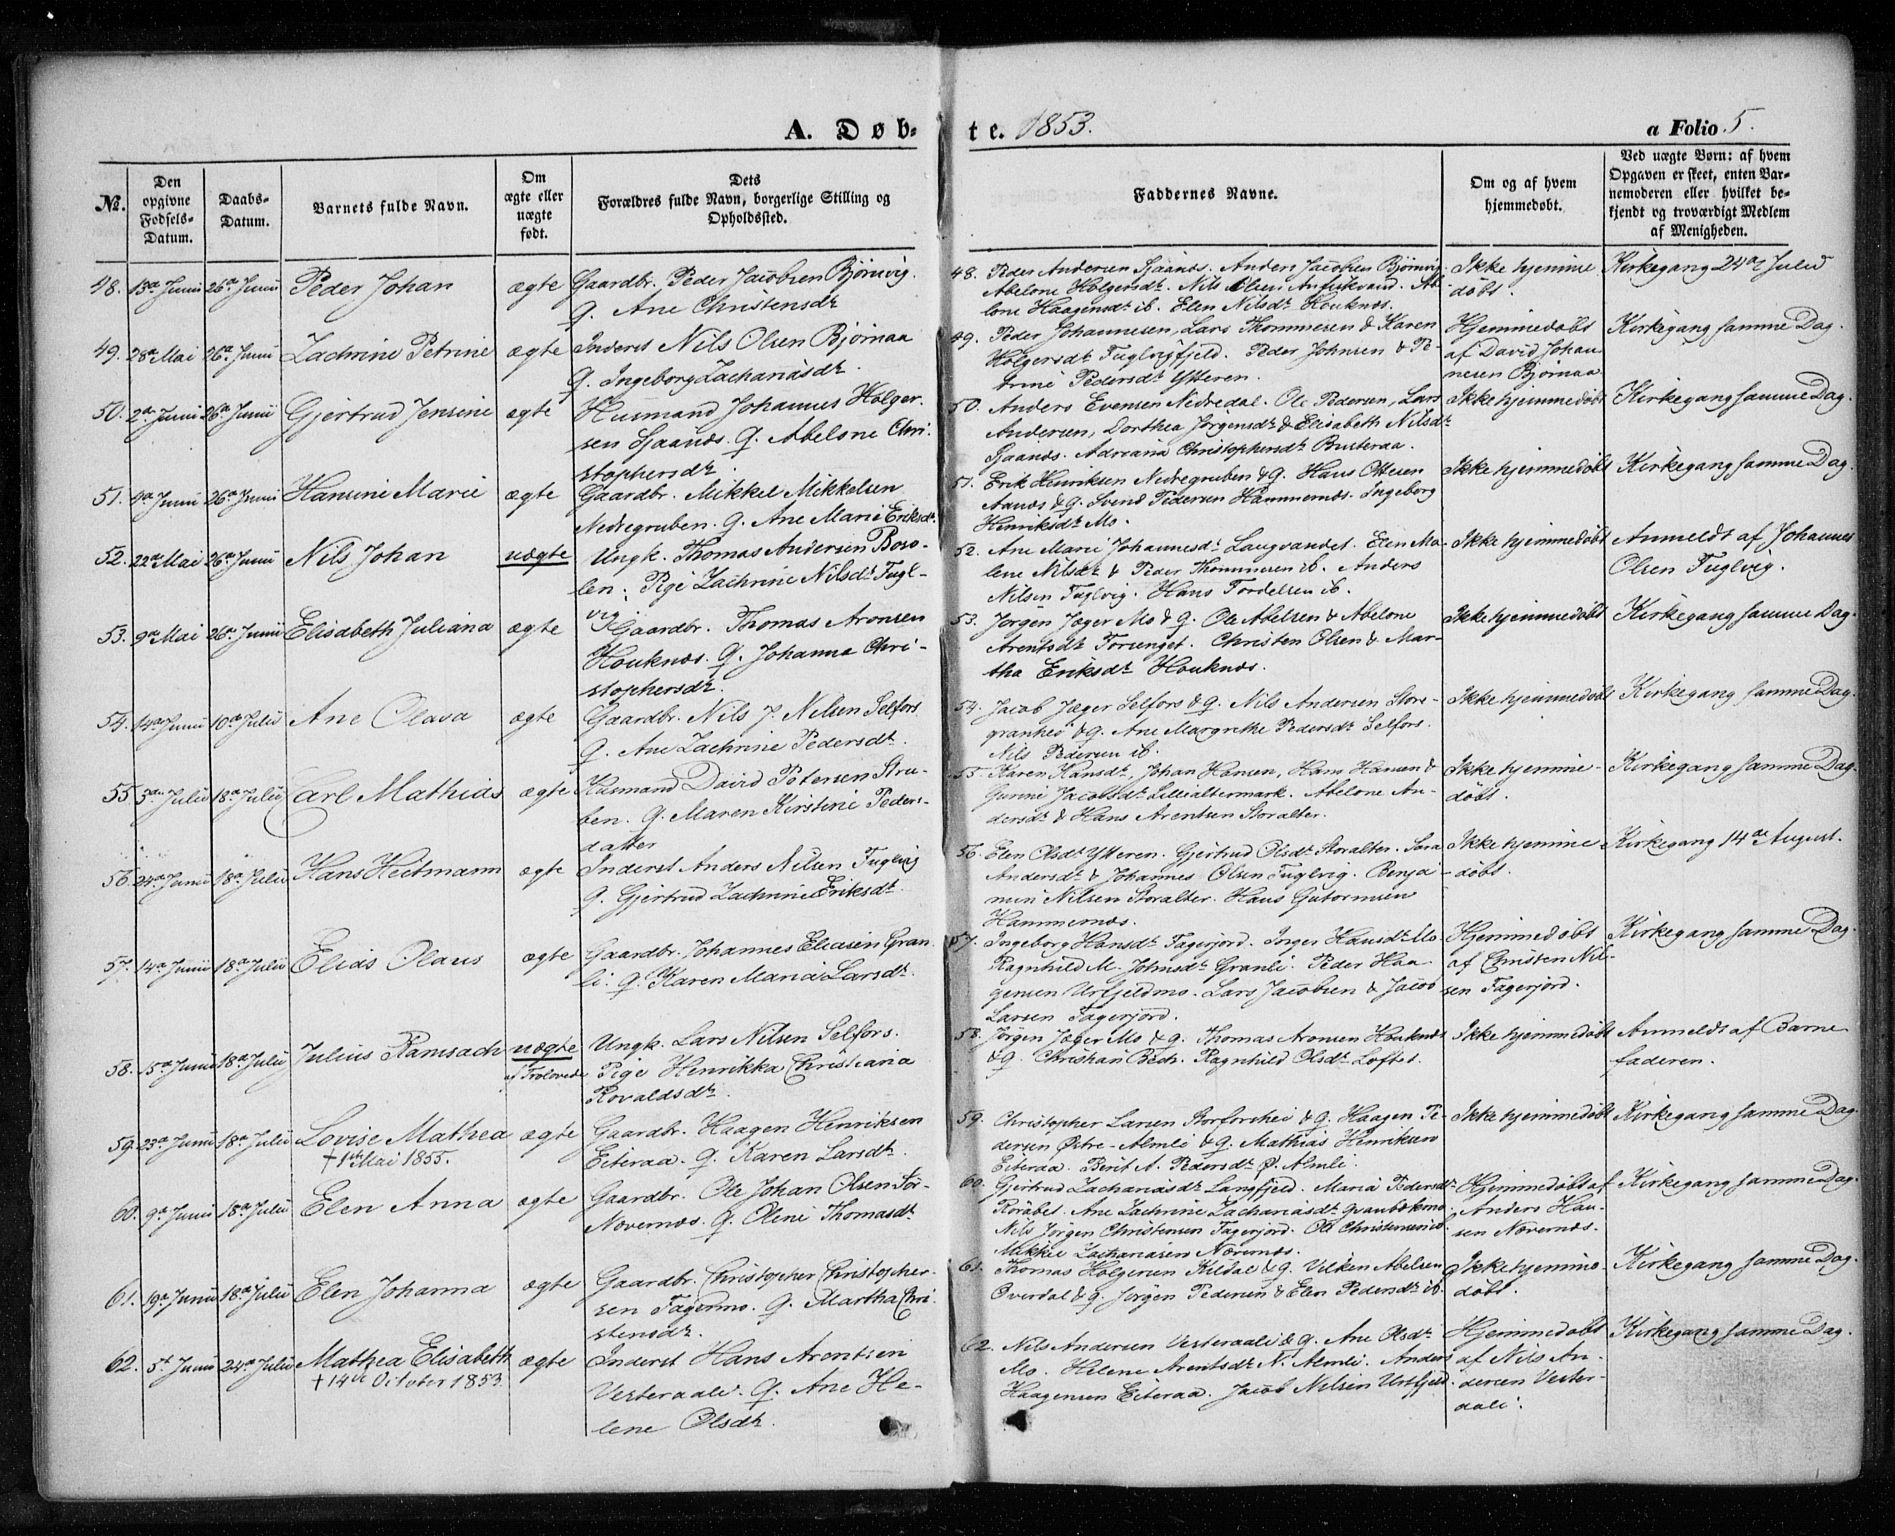 A. Døb-
te. 1853.
a Folio 5.
№.
Den opgivne Fødsels-Datum.
Daabs-Datum.
Barnets fulde Navn.
Om ægte eller uægte født.
Dets Forældres fulde Navn, borgerlige Stilling og Opholdssted.
Faddernes Navne.
Om og af hvem hjemmedøbt.
Ved uægte Børn: af hvem Opgaven er skeet, enten Barnemoderen eller hvilket bekjendt og troværdigt Medlem af Menigheden.
48. 13de Junii 26de Junii Peder Johan ægte Gaardbr. Peder Jacobsen Bjørnvig.
Q. Ane Christensdr
48. Peder Andersen Sjaanæs. Anders Jacobsen Bjørnvig.
Abelone Holgersdr. Nils Olsen
lone Haagensdr ib. Elen Nilsdr Houknæs.
Ikke hjemme
døbt.
Kirkegang 24de Julii
49. 28de Mai 26de Junii Zachrine Petrine ægte Inderst Nils Olsen Bjørnaa
Q. Ingeborg Zachariasdr
49. Peder Johannesen, Lars Thommesen & Karen
Holgersdr Fuglvigfjeld. Peder Johnsen & Pe-
trine Pedersdr Ytteren.
Hjemmedøbt
af David Johan
nesen Bjørnaa
Kirkegang samme Dag.
50. 2den Junii 26de Junii Gjertrud Jensine ægte Husmand Johannes Holger-
sen Sjaanæs. Q. Abelone Chri-
stophersdr.
50. Anders Evensen Nedredal. Ole Pedersen, Lars
Andersen, Dorthea Jørgensdr & Elisabeth Nilsdr
Sjaanæs. Adriana Christophersdr Brusteraa.
Ikke hjemmedøbt
Kirkegang samme Dag.
51. 4de Junii 26de Junii Hansine Marie ægte Gaardbr. Mikkel Mikkelsen
Nedregruben. Q. Ane Marie Eriksdr.
51. Erik Henriksen Nedregruben & Q. Hans Ottesen
Aanæs & Q. Svend Pedersen Hammernæs. Ingeborg
Henriksdr Mo.
Ikke hjemmedøbt
Kirkegang samme Dag.
52. 22de Mai 26de Junii Nils Johan uægte Ungk. Thomas Andersen Boso-
len. Pige Zachrine Nilsdr Fugl-
vig
52. Ane Marie Johannesdr Langvandet. Elen Ma-
lene Nilsdr & Peder Thommesen ib. Anders
Nilsen Fuglvig. Hans Tordelsen ib.
Ikke hjemmedøbt
Anmeldt af Johannes
Olsen Fuglvig.
53. 9de Mai 26de Junii Elisabeth Juliana ægte Gaardbr. Thomas Aronsen
Houknæs. Q. Johanna Chri-
stophersdr.
53. Jørgen Jæger Mo & Q. Ole Abelsen & Abelone
Arentsdr Forænget. Christen Olsen & Mar-
tha Eriksdr Houknæs.
Ikke hjemmedøbt
Kirkegang samme Dag.
54. 14de Junii 10de Julii Ane Olava ægte Gaardbr. Nils J. Nilsen Selfors
Q. Ane Zachrine Pedersdr.
54. Jacob Jæger Selfors & Q. Nils Andersen Store-
granhei & Q. Ane Margrethe Pedersdr Selfors.
Nils Pedersen ib.
Ikke hjemmedøbt
Kirkegang samme Dag.
55. 5de Julii 18de Julii Carl Mathias ægte Husmand David Petersen Stru-
ben. Q. Maren Kirstine Peders-
datter
55. Karen Hansdr, Johan Hansen, Hans Hansen &
Gurine Jacobsdr Lillealtermark. Abelone An-
dersdr & Hans Arentsen Storalter.
Ikke hjemme-
døbt.
Kirkegang samme Dag.
56. 24de Junii 18de Julii Hans Heitmann ægte Inderst Anders Nilsen Fuglvig
Q. Gjertrud Zachrine Eriksdr.
56. Elen Olsdr Ytteren. Gjertrud Olsdr Storalter. Sara
Andersdr & Johannes Olsen Fuglvig. Benja-
min Nilsen Storalter. Hans Gutormsen
Hammernæs.
Ikke hjemme
døbt.
Kirkegang 14de August.
57. 14de Junii 18de Julii Elias Olaus ægte Gaardbr. Johannes Eliasen Gran-
li. Q. Karen Maria Larsdr.
57. Ingeborg Hansdr Fagerjord. Inger Hansdr Mo
Ragnhild M. Johnsdr Granli. Peder Haa-
gensen Urtfjeldmo. Lars Jacobsen & Jacob
Larsen Fagerjord.
Hjemmedøbt
af Christen Nil-
sen Fagerjord.
Kirkegang samme Dag.
58. 15de Junii 18de Julii Julius Ramsach uægte
af Trolovede
Ungk. Lars Nilsen Selfors.
Pige Henrikka Christiana
Rovaldsdr.
58. Jørgen Jæger Mo & Q. Thomas Aronsen Houknæs
& Q. Christian Bech. Ragnhild Olsdr Loftet.
Ikke hjemmedøbt
Anmeldt af Barne
faderen.
59. 23de Junii 18de Julii Lovise Mathea
† 1ste Mai 1855.
ægte Gaardbr. Haagen Henriksen
Eiteraa. Q. Karen Larsdr.
59. Christopher Larsen Storforshei & Q. Haagen Pe-
dersen Østre-Almli & Q. Mathias Henriksen
Eiteraa. Berit A. Pedersdr Ø. Almli.
Ikke hjemmedøbt
Kirkegang samme Dag.
60. 9de Junii 18de Julii Elen Anna ægte Gaardbr. Ole Johan Olsen Sør-
Nævernæs. Q. Oline Thomasdr
60. Gjertrud Zachariasdr Langfjeld. Maria Pedersdr
Røråbel. Ane Zachrine Zachariasdr Granbækmo
Nils Jørgen Christensen Fagerjord. Ole Christensen ib.
Mikkel Zachariasen Nævernæs.
Hjemmedøbt af
Anders Han-
sen Nævernæs.
Kirkegang samme Dag.
61. 19de Junii 18de Julii Elen Johanna ægte Gaardbr. Christopher Christopher-
sen Fagermo. Q. Martha Chri-
stensdr.
61. Thomas Holgersen Kildal & Q. Velken Abelsen
Overdal & Q. Jørgen Pedersen & Elen Pedersdr ib.
Ikke hjemme-
døbt.
Kirkegang samme Dag.
62. 5te Junii 24de Julii Mathea Elisabeth
† 14de October 1853.
ægte Inderst Hans Arentsen
Vesteraali. Q. Ane He-
lene Olsdr.
62. Nils Andersen Vesteraali & Q. Ane Olsdr
Mo. Helene Arentsdr N. Almli. Anders
Haagensen Eiteraa. Jacob Nilsen Urtfjeld.
Hjemmedøbt
af Nils An-
dersen Vester-
aali.
Kirkegang samme Dag.